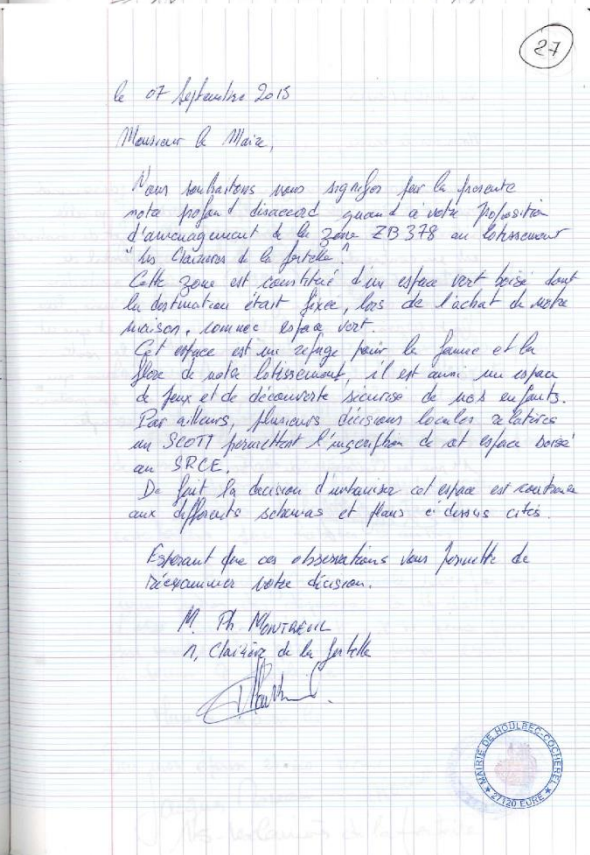 27
le 07 Septembre 2015
Monsieur le Maire,
Nous souhaitons vous signifer par la presente
note profond disaccord quand à votre proposition
d'amenagement de la zone ZB 378 au lotissement
"les Clairieres de la fortelle".
Cette zone est constitué d'un espace vert boisé dont
la destination était fixée, lors de l'achat de notre
maison, comme espace vert.
Cet espace est un refuge pour la faune et la
flore de notre lotissement, il est aussi un espace
de jeux et de découverte sécurisé de nos enfants.
Par ailleurs, plusieurs décisions locales relatives
au SCOTT permettent l'inscription de cet espace boisé
au SRCE.
De fait la decision d'urbaniser cet espace est contraire
aux differents schemas et plans ci dessus cités.
Esperant que ces observations vous permette de
réexaminer votre décision.
M. Ph MONTREUIL
, Clairière de la fortelle
MAIRIE DE HOULBEC-COCHEREL
★ 27120 EURE ★